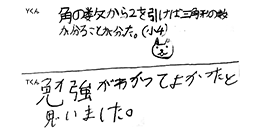 Yくん
角の数から2を引けば三角形の数
が分ることが分った。(小4)
Tくん
勉強がわかってよかったと
思いました。